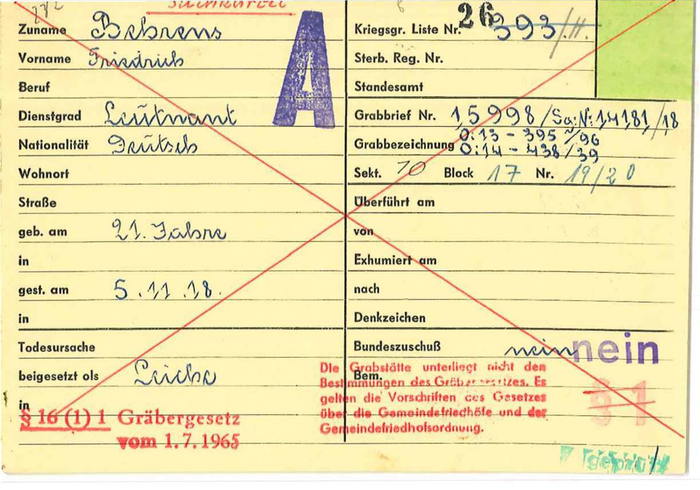 Suchkartei
Zuname Behrens
Vorname Friedrich
Beruf
Dienstgrad Leutnant
Nationalität Deutsch
Wohnort
Straße
geb. am 21. Jahre
in
gest. am 5.11.18.
in
Todesursache
beigesetzt als Leiche
in
§ 16 (1) 1 Gräbergesetz
vom 1.7.1965
A
Kriegsgr. Liste Nr. 26 393/II.
Sterb. Reg. Nr.
Standesamt
Grabbrief Nr. 15998/Sg:N:14181/18
Grabbezeichnung O:13 - 395 ~/96
O:14 - 438/39
Sekt. 10 Block 17 Nr. 19/20
Überführt am
von
Exhumiert am
nach
Denkzeichen
Bundeszuschuß nein nein
Bem.
Die Grabstätte unterliegt nicht den
Bestimmungen des Gräbergesetzes. Es
gelten die Vorschriften des Gesetzes
über die Gemeindefriedhöfe und der
Gemeindefriedhofsordnung.
§ 1
geprüft